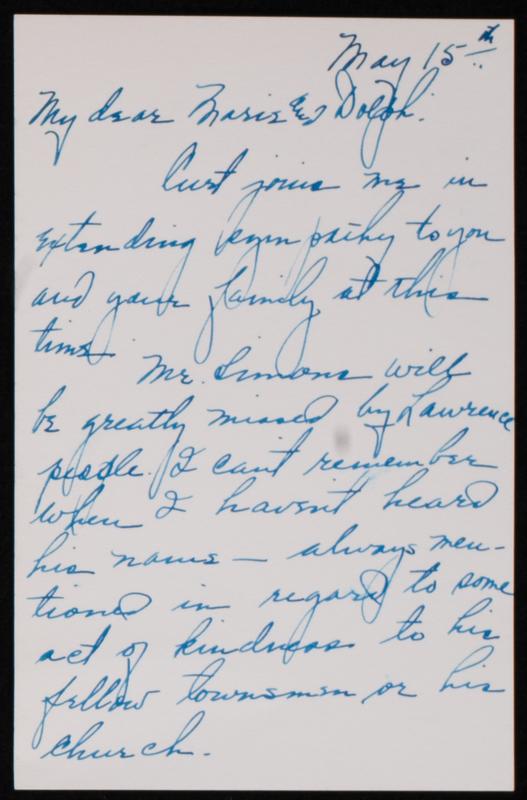 May 15th
My dear Marie and Dolph:
Curt joins me in
extending sympathy to you
and your family at this
time.
Mr. Simons will
be greatly missed by Lawrence
people. I can't remember
when I haven't heard
his name — always men-
tioned in regard to some
act of kindness to his
fellow townsmen or his
church.